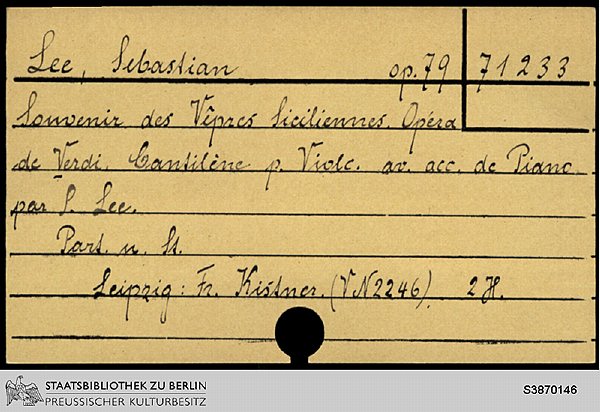 Lee, Sebastian op. 79 71233
Souvenir des Vêpres Siciliennes. Opéra
de Verdi. Cantilène p. Violc. av. acc. de Piano
par S. Lee.
Part. u. St.
Leipzig: Fr. Kistner. (VN 2246). 2 H.
STAATSBIBLIOTHEK ZU BERLIN
PREUSSISCHER KULTURBESITZ
S3870146